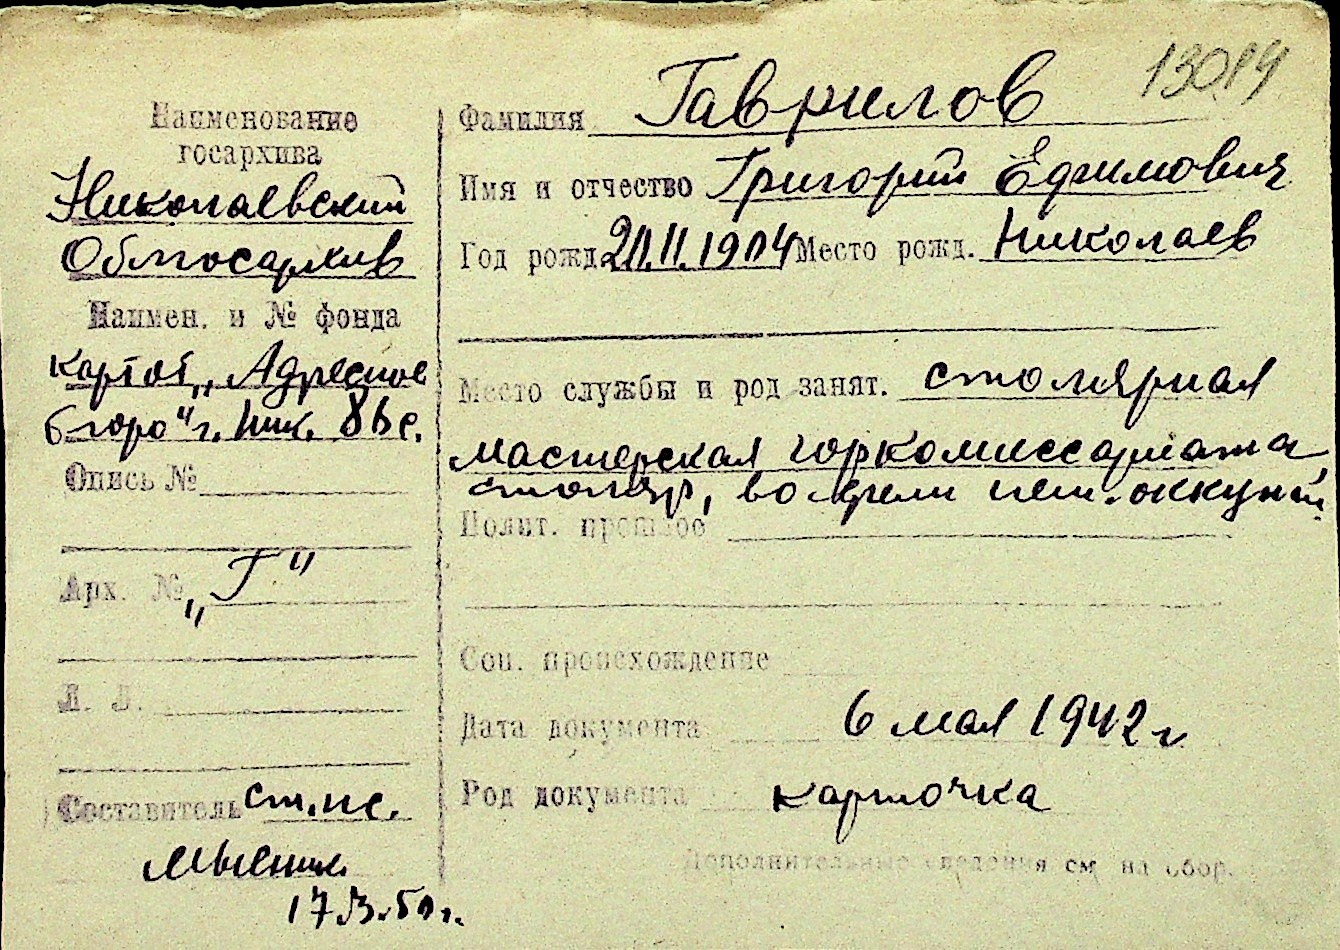 13014
Наименование
госархива
Николаевский
Облгосархив
Наимен. и № фонда
картот. „Адресное
бюро" г. Ник. 86 с.
Опись №
Арх. № „Г"
Л. Л.
Составитель ст. пс.
17.3.50 г.
Фамилия Гаврилов
Имя и отчество Григорий Ефимович
Год рожд. 20.11.1904 Место рожд. Николаев
Место службы и род занят. столярная
мастерская горкомиссариата,
столяр, во время нем. оккупац.
Полит. прошлое
Соц. происхождение
Дата документа 6 мая 1942 г
Род документа карточка
Дополнительные сведения см. на обор.